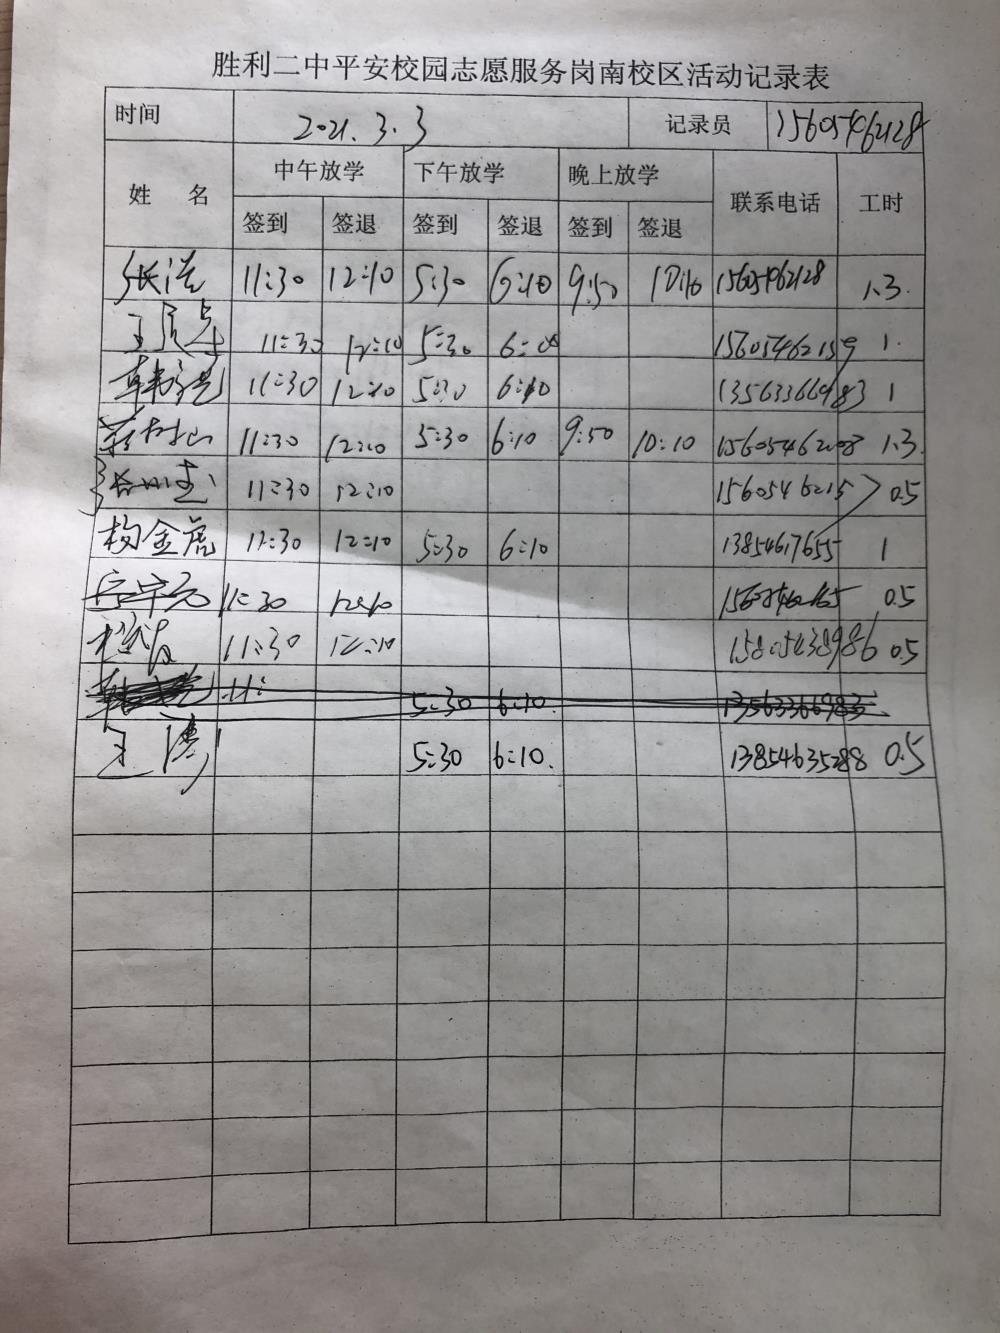 胜利二中平安校园志愿服务岗南校区活动记录表
时间 2021.3.3 记录员 15605462128
姓 名 中午放学 下午放学 晚上放学 联系电话 工时
签到 签退 签到 签退 签到 签退
11:30 12:10 5:30 6:10 9:50 10:10 15605462128 1.3
11:30 12:10 5:30 6:10 15605462159 1.
11:30 12:10 5:30 6:10 13563366983 1
11:30 12:10 5:30 6:10 9:50 10:10 15605462008 1.3
11:30 12:10 0.5
杨金虎 11:30 12:10 5:30 6:10 13854617655 1
11:30 12:10 0.5
11:30 12:10 15805438986 0.5
11: 5:30 6:10 13563366983
王涛 5:30 6:10. 13854635288 0.5